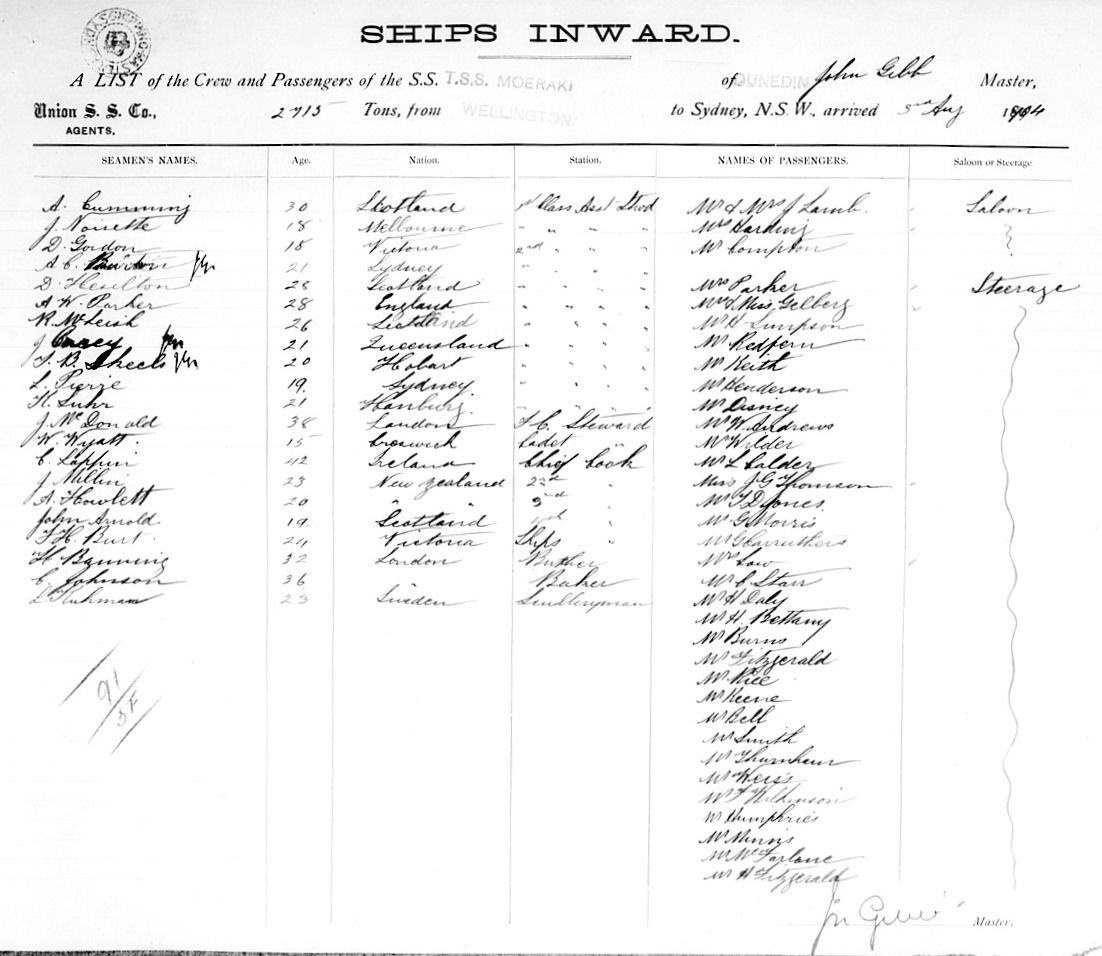 SHIPS INWARD.
A LIST of the Crew and Passengers of the S.S. T.S.S. MOERAKI of DUNEDIN John Gibb Master,
Union S. S. Co., 2715 Tons, from WELLINGTON to Sydney, N.S.W., arrived 3rd Aug 1904
AGENTS,
SEAMEN'S NAMES. Age. Nation. Station. NAMES OF PASSENGERS. Saloon or Steerage
A. Cumming 30 Scotland 1st Class Asst Stwd Mr & Mrs J Lamb. Saloon
J. Noisette 18 Melbourne " " " Mrs Harding
D. Gordon 18 Victoria 2nd " " " Mr Compton
A C. Burton 21 Sydney " " "
D. Hesilton 25 Scotland " " " " Mrs Parker Steerage
A W. Parker 28 England " " " " Mr & Miss Gelberg
R. McLeish 26 Scotland " " " " Mr H Simpson
J Casey 21 Queensland " " " " Mr Redfern
T. B. Skeels 20 Hobart " " " " Mr Keith
L. Pierre 19. Sydney " " " " Mr Henderson
K. Suhr 21 Hamburg. " " " " Mr Disney
J. McDonald 38 London F. C. Steward Mr W. Andrews
W. Wyatt. 15 Creswick Cadet " Mr Wilder
C. Lappin 42 Ireland Chief Cook Mr L Calder
J Millin 23 New Zealand 2nd " Miss J G Thomson
A. Howlett 20 " " 3rd " Mr T D Jones
John Arnold 19. Scotland " Mr G Morris
F. H. Burt. 24 Victoria Ships " Mr G Carruthers
H Banning 32 London Butcher Mrs Low
C Johnson 36 Baker Mr C Starr
L. Kuhman 23 Sweden Mr H Daly
Mr H. Bettany
Mr Burns
Mr Fitzgerald
Mr Rice
Mr Keene
Mr Bell
Mr Smith
Mr Thurnham
Mr Weiss
Mr F Wilkinson
Mr Humphries
Mr Minnis
Mr McFarlane
Mr H Fitzgerald
91
Jn Gibb Master.